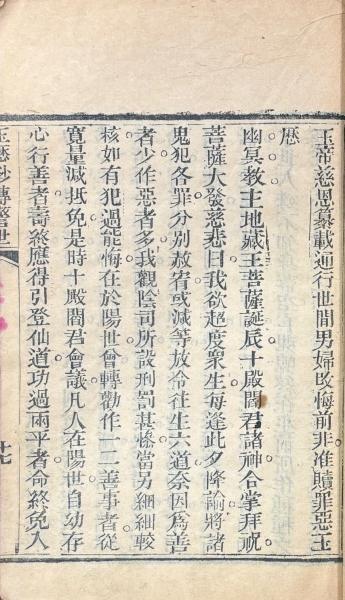 玉帝慈恩纂載通行世間男婦改悔前非准贖罪惡玉
歷
幽冥教主地藏王菩薩誕辰十殿閻君諸神合掌拜祝
菩薩大發慈悲曰我欲超度衆生每逢此夕降諭將諸
鬼犯各罪分別赦宥或減等放令往生六道奈因爲善
者少作惡者多我觀陰司所設刑罰甚慘當另細細較
核如有犯過能悔在於陽世會轉勸作一二善事者從
寬量減抵免是時十殿閻君會議凡人在陽世自幼存
心行善者壽終應得引登仙道功過兩平者命終免入
玉歷鈔傳警世
十七